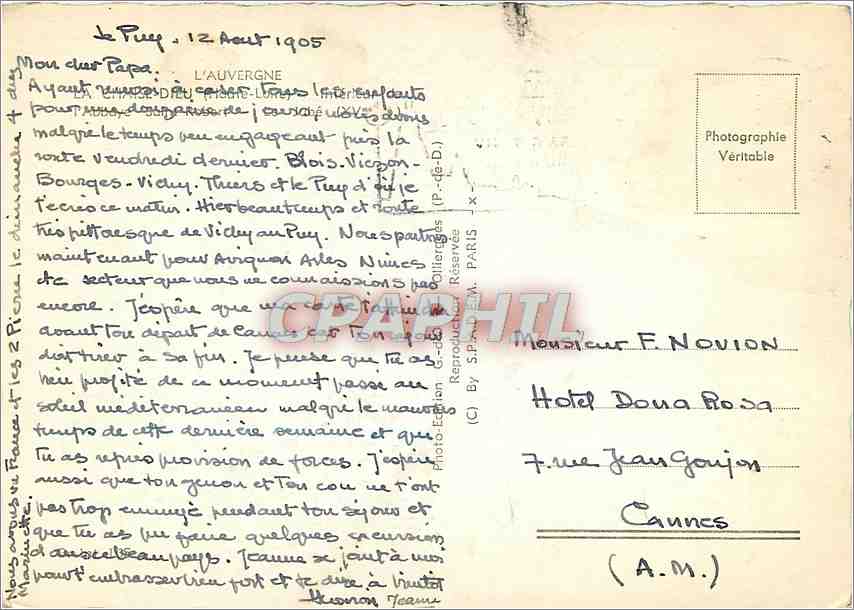 Le Puy. 12 Aout 1905
Mon cher Papa.
L'AUVERGNE
LA CHAISE-DIEU (Haute-Loire)
Ayant réussi à caser tous les enfants
pour une douzaine de jours, nous avons
malgré le temps peu engageant pris la
route vendredi dernier. Blois - Vierzon -
Bourges - Vichy. Thiers et le Puy d'où je
t'écris ce matin. Hier beau temps et route
très pittoresque de Vichy au Puy. Nous partons
maintenant pour Avignon Arles Nîmes
etc secteur que nous ne connaissions pas
encore. J'espère que ma carte t'atteindra
avant ton départ de Cannes car ton séjour
doit tirer à sa fin. Je pense que tu as
bien profité de ce moment passé au
soleil méditerranéen malgré le mauvais
temps de cette dernière semaine et que
tu as repris provision de forces. J'espère
aussi que ton genou et ton cou ne t'ont
pas trop ennuyé pendant ton séjour et
que tu as pu faire quelques excursions
dans ce beau pays. Jeanne se joint à moi
pour t'embrasser bien fort et te dire à bientôt
Jeanne
Nous avons vu France et les 2 Pierre le dimanche 4 chez
Marinette.
Photo-Edition G.-d'O. Olliergues (P.-de-D.)
Reproduction Réservée
(C) By S.P.A.D.E.M. PARIS - x -
CPARPHIL
Photographie
Véritable
Monsieur F. NOVION
Hotel Dona Rosa
7. rue Jean Goujon
Cannes
(A.M.)